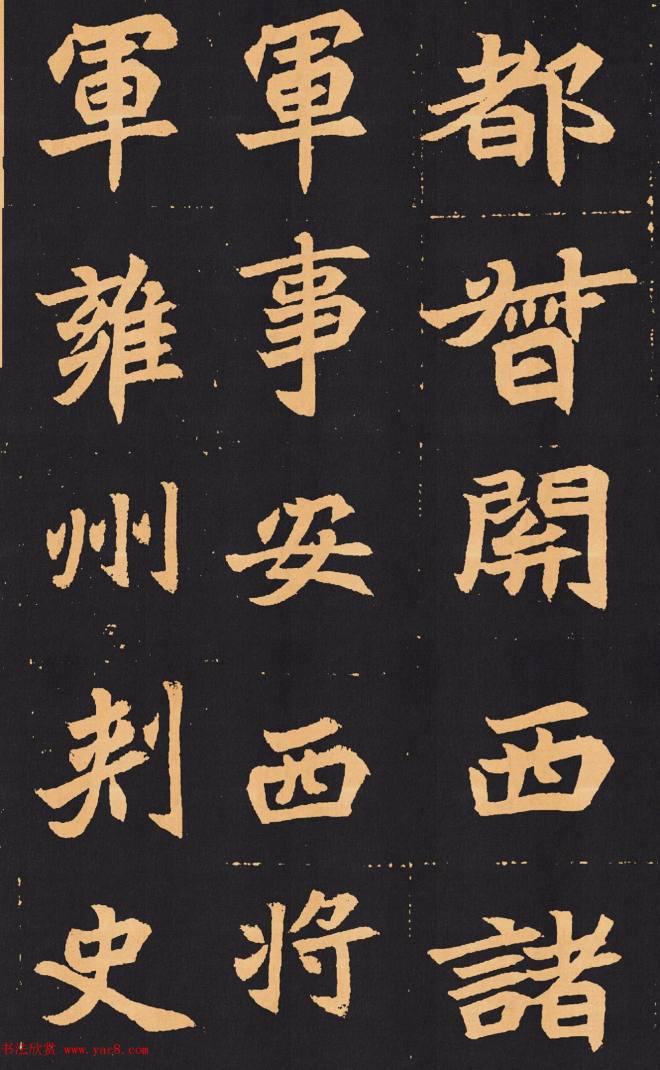 都督開西諸
軍事安西將
軍雍州刺史
书法欣赏 www.yac8.com